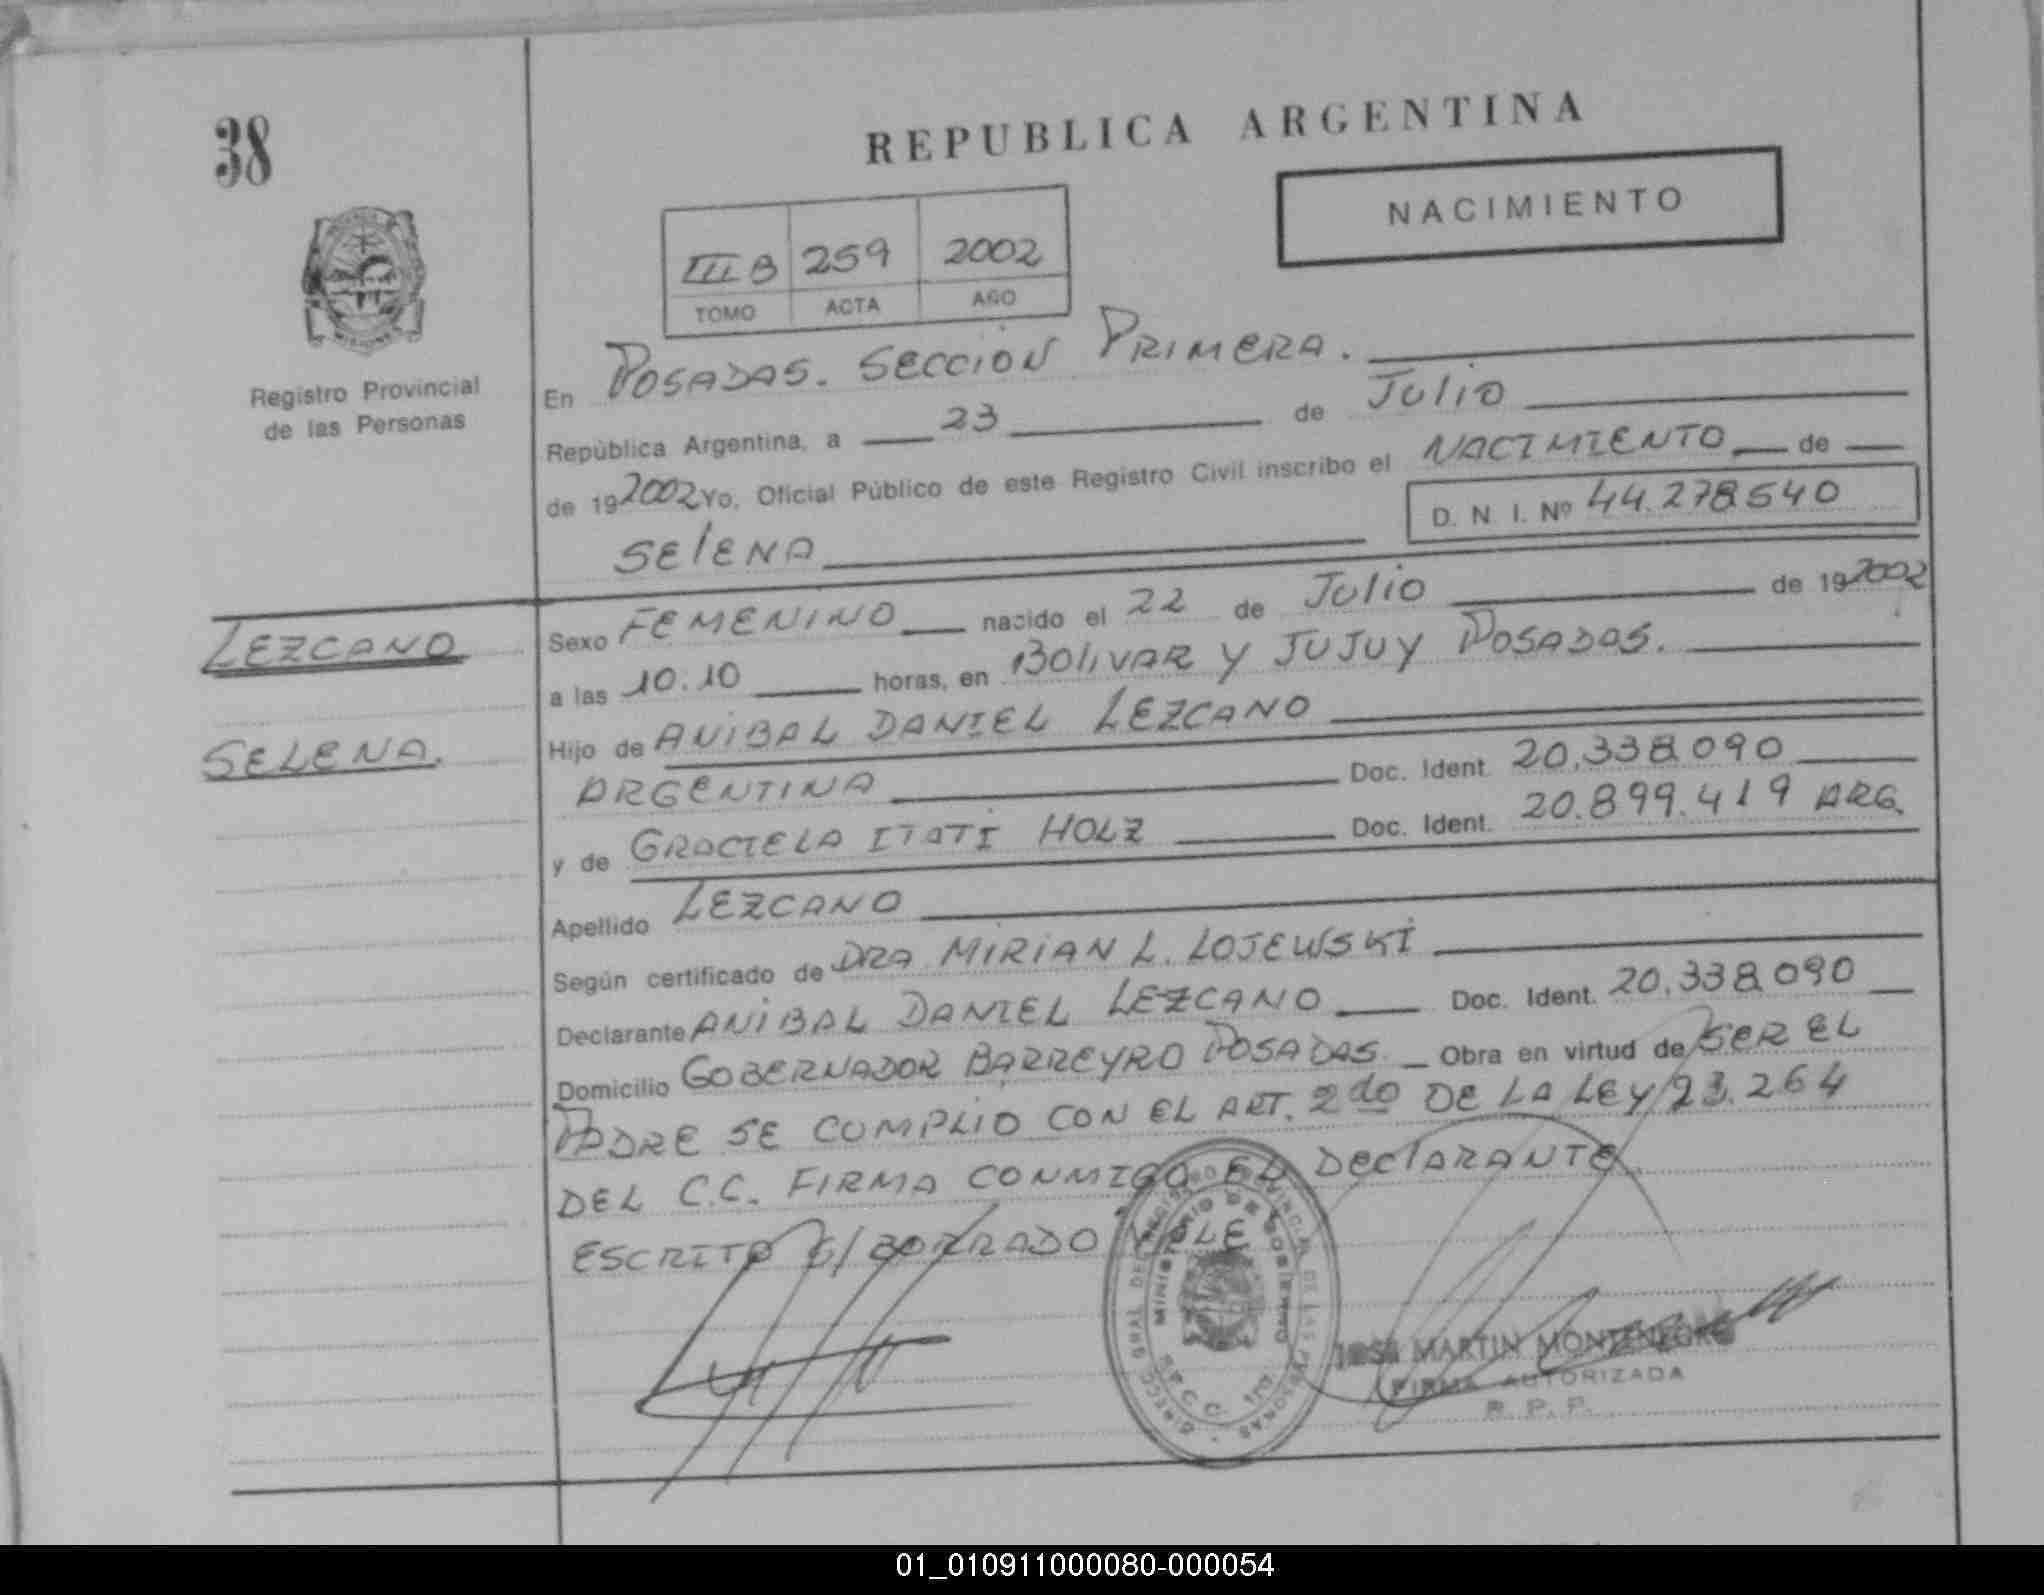 38
REPUBLICA ARGENTINA
NACIMIENTO
III B 259 2002
TOMO ACTA AÑO
Registro Provincial
de las Personas
En POSADAS. SECCIÓN PRIMERA.
República Argentina, a 23 de Julio
de 192002 Yo, Oficial Público de este Registro Civil inscribo el NACIMIENTO de
D. N. I. Nº 44.278.540
SELENA
LEZCANO
SELENA.
Sexo FEMENINO nacido el 22 de Julio de 192002
a las 10.10 horas, en BOLIVAR Y JUJUY POSADAS.
Hijo de ANIBAL DANIEL LEZCANO
ARGENTINA Doc. Ident. 20.338.090
y de GRACIELA ITATI HOLZ Doc. Ident. 20.899.419 ARG.
Apellido LEZCANO
Según certificado de DRA MIRIAN L. LOJEWSKI
Declarante ANIBAL DANIEL LEZCANO Doc. Ident. 20.338.090
Domicilio GOBERNADOR BARREYRO POSADAS. Obra en virtud de SER EL
PADRE SE CUMPLIO CON EL ART. 2do DE LA LEY 23.264
DEL C.C. FIRMA CONMIGO EL DECLARANTE
ESCRITO S/BORRADO VALE
JOSE MARTIN MONTENEGRO
FIRMA AUTORIZADA
R. P. P.
01_010911000080-000054